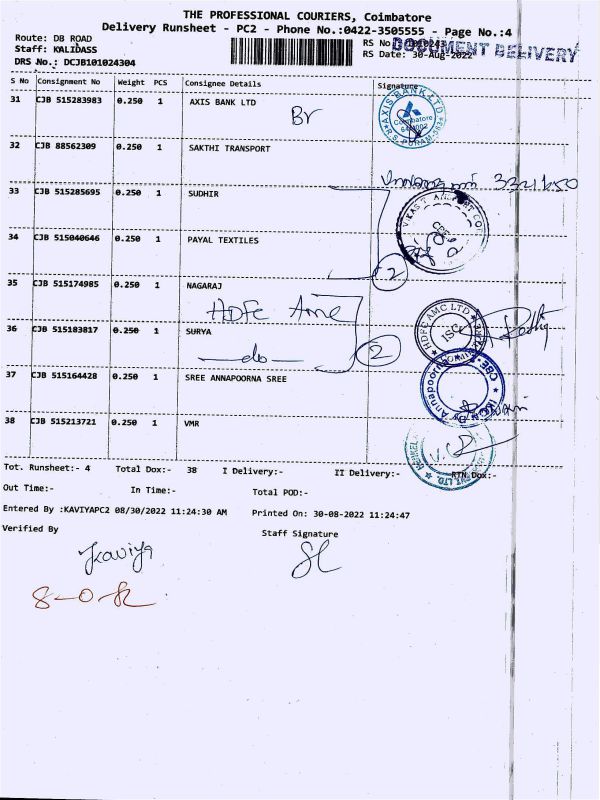 THE PROFESSIONAL COURIERS, Coimbatore
Delivery Runsheet - PC2 - Phone No.:0422-3505555 - Page No.:4
Route: DB ROAD
Staff: KALIDASS
DRS No.: DCJB101024304
RS No
DOCUMENT DELIVERY
RS Date: 30-Aug-2022
S No Consignment No Weight PCS Consignee Details Signature
31 CJB 515283983 0.250 1 AXIS BANK LTD
Br
AXIS BANK LTD
Coimbatore
R.S. PURAM
32 CJB 88562309 0.250 1 SAKTHI TRANSPORT
33 CJB 515285695 0.250 1 SUDHIR
34 CJB 515040646 0.250 1 PAYAL TEXTILES
2
35 CJB 515174985 0.250 1 NAGARAJ
HDFC Amc
HDFC AMC LTD
ISC
36 CJB 515183817 0.250 1 SURYA
do
2
37 CJB 515164428 0.250 1 SREE ANNAPOORNA SREE
Annapoorna
CBE
38 CJB 515213721 0.250 1 VMR
Tot. Runsheet:- 4 Total Dox:- 38 I Delivery:- II Delivery:- RTN Dox:-
Out Time:- In Time:- Total POD:-
Entered By :KAVIYAPC2 08/30/2022 11:24:30 AM Printed On: 30-08-2022 11:24:47
Verified By Staff Signature
Kaviya